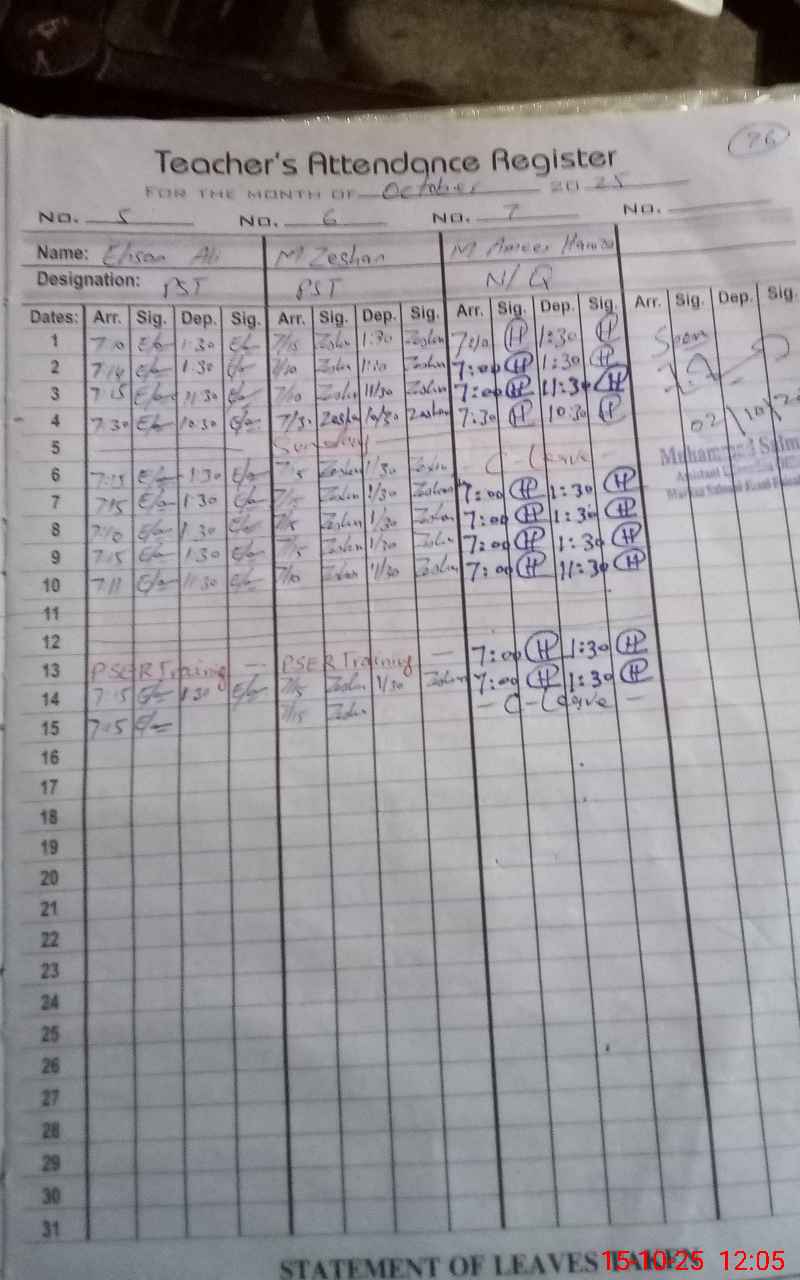 76
Teacher's Attendance Register
FOR THE MONTH OF October 2025
No. 5 No. 6 No. 7 No.
Name: Ehsan Ali M Zeshan M Ameer Hamza
Designation: PST PST N/Q
Dates: Arr. Sig. Dep. Sig. Arr. Sig. Dep. Sig. Arr. Sig. Dep. Sig. Arr. Sig. Dep. Sig.
1 7:10 1:30 7/15 Zeshan 1:30 Zeshan 7:10 H 1:30 H Seen
2 7:14 1:30 7/10 Zeshan Zeshan 7:00 H 1:30 H
3 7:15 11:30 7/10 Zeshan 11/30 Zeshan 7:00 H 11:30 H
4 7:30 10:30 7/30 Zeshan 10/30 Zeshan 7:30 H 10:30 H 02/10/
5 Sunday
6 7:15 1:30 7/15 Zeshan 1/30 Zeshan - C-Leave - Muhammad Salm
7 7:15 1:30 7/15 Zeshan 1/30 Zeshan 7:00 H 1:30 H Assistant
8 7:10 1:30 7/15 Zeshan 1/30 Zeshan 7:00 H 1:30 H
9 7:15 1:30 7/15 Zeshan 1/30 Zeshan 7:00 H 1:30 H
10 7:11 11:30 7/10 Zeshan 11/30 Zeshan 7:00 H 11:30 H
11
12
13 PSER Training - PSER Training - 7:00 H 1:30 H
14 7:15 1:30 7/15 Zeshan 1/30 Zeshan 7:00 H 1:30 H
15 7:15 7/15 Zeshan - C-Leave -
16
17
18
19
20
21
22
23
24
25
26
27
28
29
30
31
STATEMENT OF LEAVES TAKEN
15-10-25 12:05